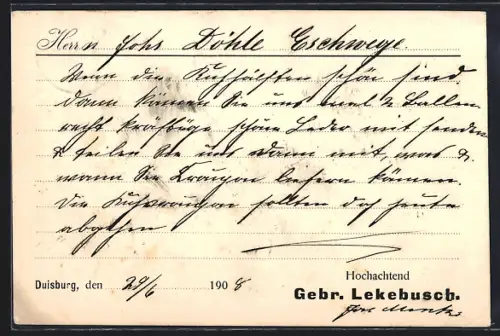 Herrn Johs Döhle Eschwege.
Wenn die Kuhhälften schön sind
dann können Sie uns mal 2 Ballen
recht kräftige schöne Leder mit senden
& teilen Sie uns dann mit, was &
wann Sie liefern können.
Die sollten doch heute
abgehen
Duisburg, den 29/6 1908
Hochachtend
Gebr. Lekebusch.